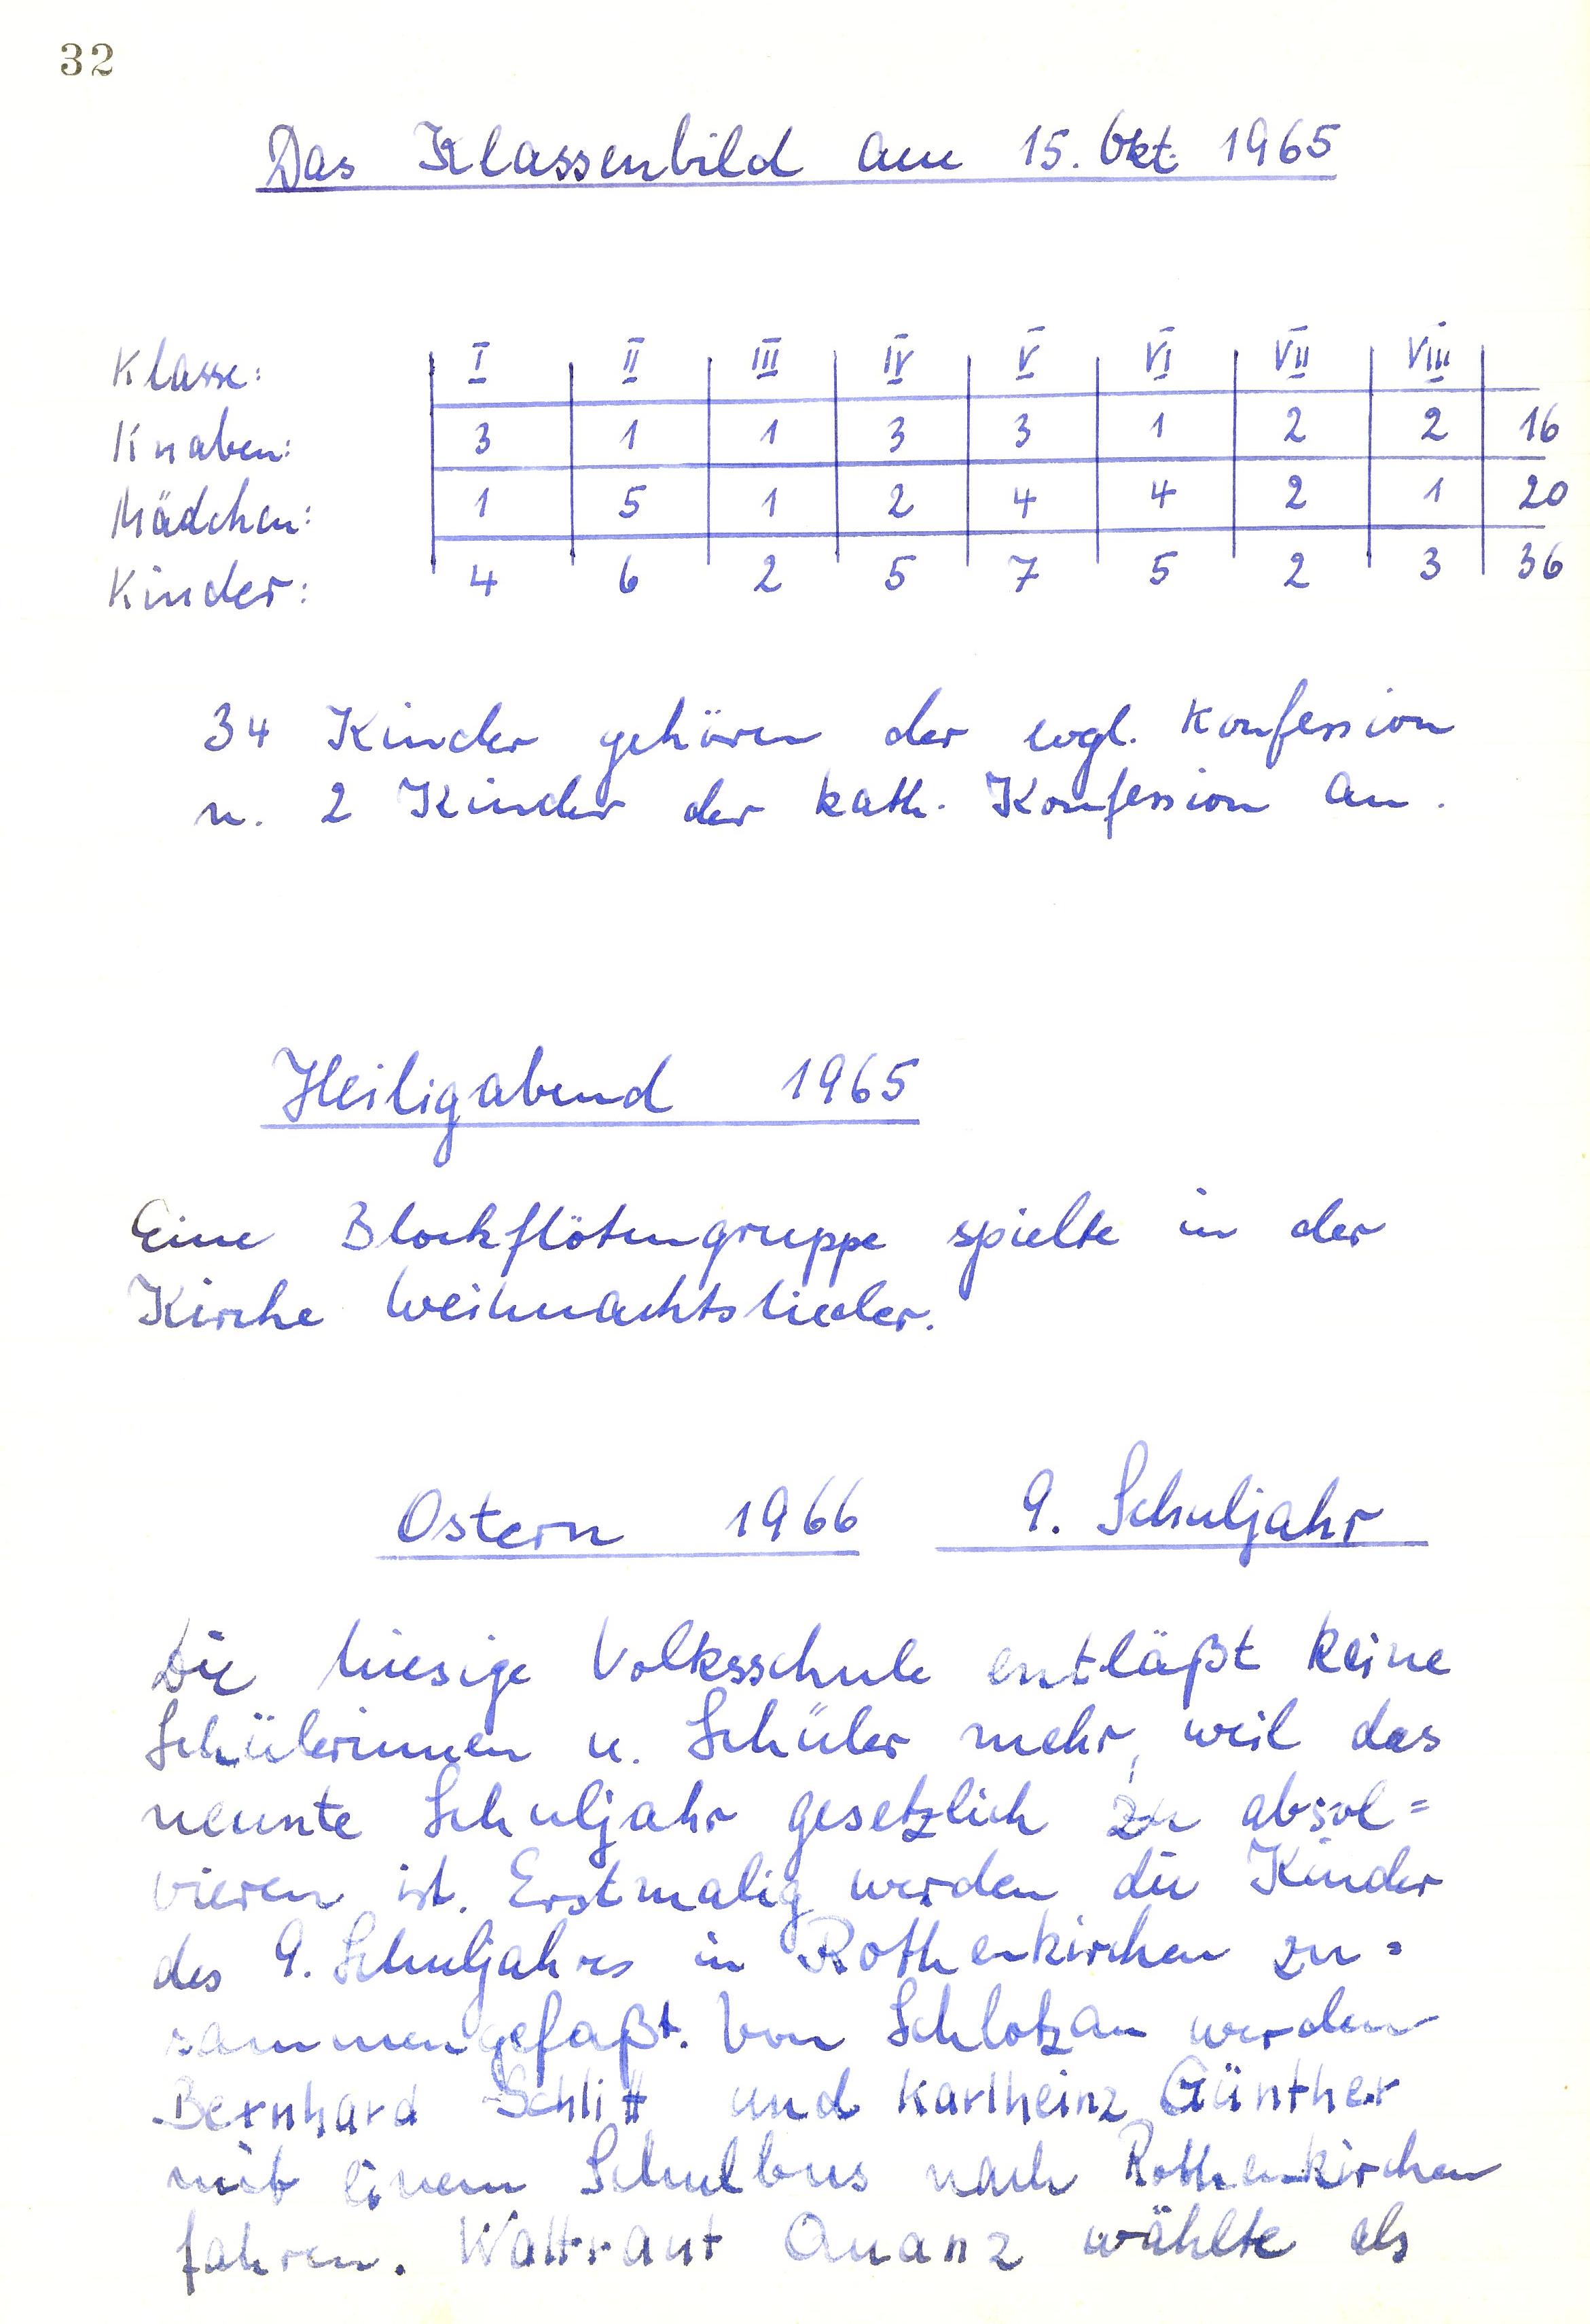 32
Das Klassenbild am 15. Okt. 1965
Klasse: I II III IV V VI VII VIII
Knaben: 3 1 1 3 3 1 2 2 16
Mädchen: 1 5 1 2 4 4 2 1 20
Kinder: 4 6 2 5 7 5 2 3 36
34 Kinder gehören der evgl. Konfession
u. 2 Kinder der kath. Konfession an.
Heiligabend 1965
Eine Blockflötengruppe spielte in der
Kirche Weihnachtslieder.
Ostern 1966 9. Schuljahr
Die hiesige Volksschule entläßt keine
Schülerinnen u. Schüler mehr, weil das
neunte Schuljahr gesetzlich zu absol=
vieren ist. Erstmalig werden die Kinder
des 9. Schuljahres in Rothenkirchen zu=
sammengefaßt. Von Schlotzau werden
Bernhard Schlitt und Karlheinz Günther
mit einem Schulbus nach Rothenkirchen
fahren. Waltraut Quanz wählte als